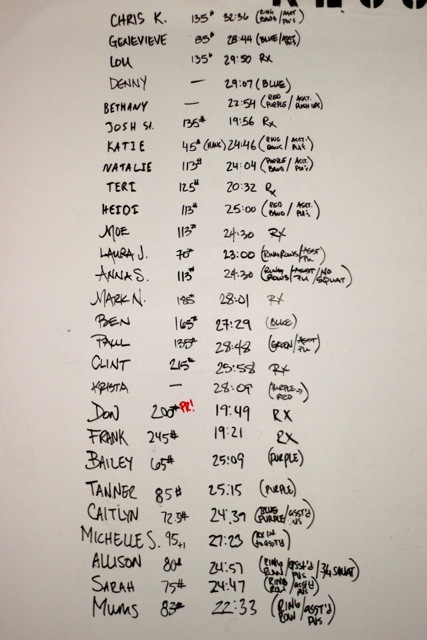 CHRIS K. 135# 32:36 (RING ROWS/ASST PU'S)
GENEVIEVE 85# 28:44 (BLUE/ASST PU'S)
LOU 135# 29:50 RX
DENNY — 29:07 (BLUE)
BETHANY — 22:54 (RED PURPLE/ASST. PUSHUPS)
JOSH SI. 135# 19:56 RX
KATIE 45# 24:46 (RING ROWS/ASST. PU'S)
NATALIE 113# 24:04 (PURPLE BAND/ASST. PU'S)
TERI 125# 20:32 RX
HEIDI 113# 25:00 (RED BAND/ASST. PU'S)
MOE 113# 24:30 RX
LAURA J. 70# 23:00 (RING ROWS/ASST PU)
ANNA S. 113# 24:30 (RING ROWS/ASST PU/NO SQUAT)
MARK N. 185# 28:01 RX
BEN 165# 27:29 (BLUE)
PAUL 135# 28:48 (GREEN/ASST PU)
CLINT 215# 25:58 RX
KRISTA — 28:09 (PURPLE→RED)
DON 200# PR! 19:49 RX
FRANK 245# 19:21 RX
BAILEY 65# 25:09 (PURPLE)
TANNER 85# 25:15 (PURPLE)
CAITLYN 72.5# 24:39 (BLUE PURPLE/ASST'D PU'S)
MICHELLE S. 95 27:23
ALLISON 80# 24:57 (RING ROW/ASST'D PU'S/3/4 SQUAT)
SARAH 75# 24:47 (RING ROW/ASST'D PU'S)
MUMS 83# 22:33 (RING ROW/ASST'D PU'S)